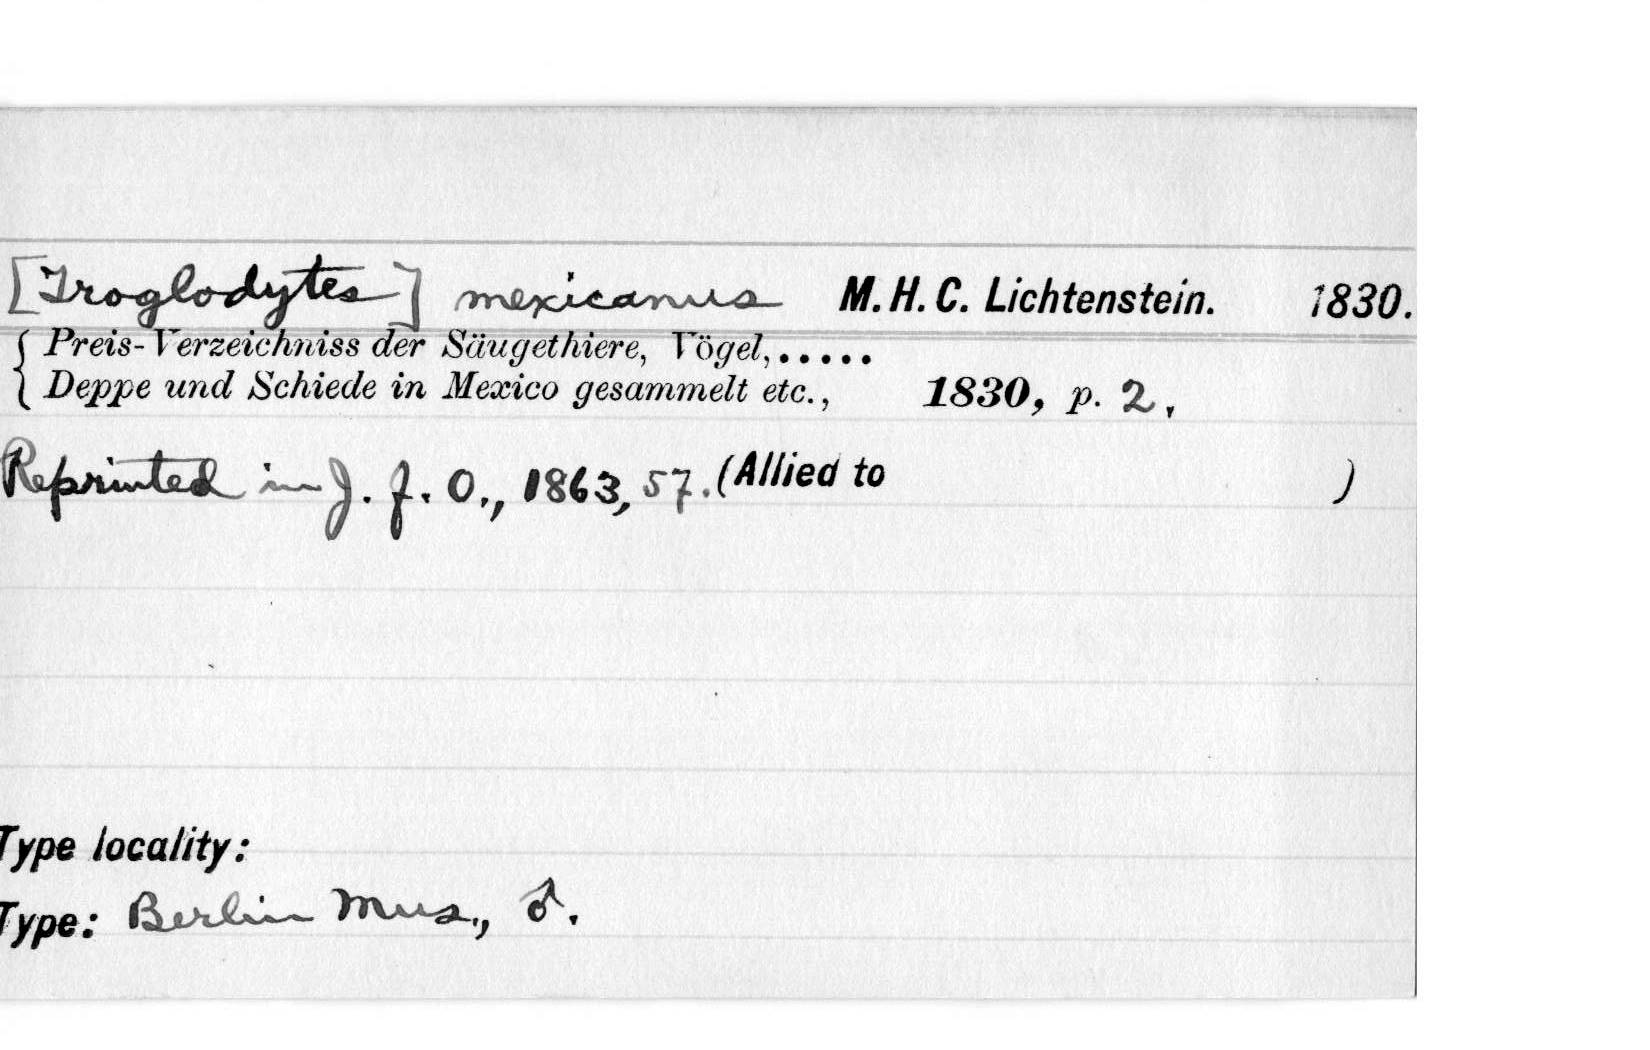 [Troglodytes] mexicanus M. H. C. Lichtenstein. 1830.
Preis-Verzeichniss der Säugethiere, Vögel,.....
Deppe und Schiede in Mexico gesammelt etc., 1830, p. 2.
Reprinted in J. f. O., 1863, 57. (Allied to )
Type locality:
Type: Berlin Mus., ♂.